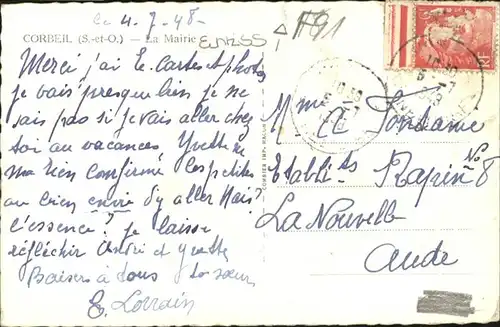 Ce 4-7-48-
CORBEIL (S.-et-O.) — La Mairie
F91
Merci j'ai E. Cartes et photos
je vais presque bien je ne
sais pas si je vais aller chez
toi au vacances Yvette
ma rien confirmé les petites
au bien envie d'y aller Mais
l'essence? je laisse
réfléchir André et Yvette
Baisers à tous ta sœur
E. Lorrain
COMBIER IMP. MACON
Mme C. Fondame
Etablits Rapin No 8
La Nouvelle
Aude